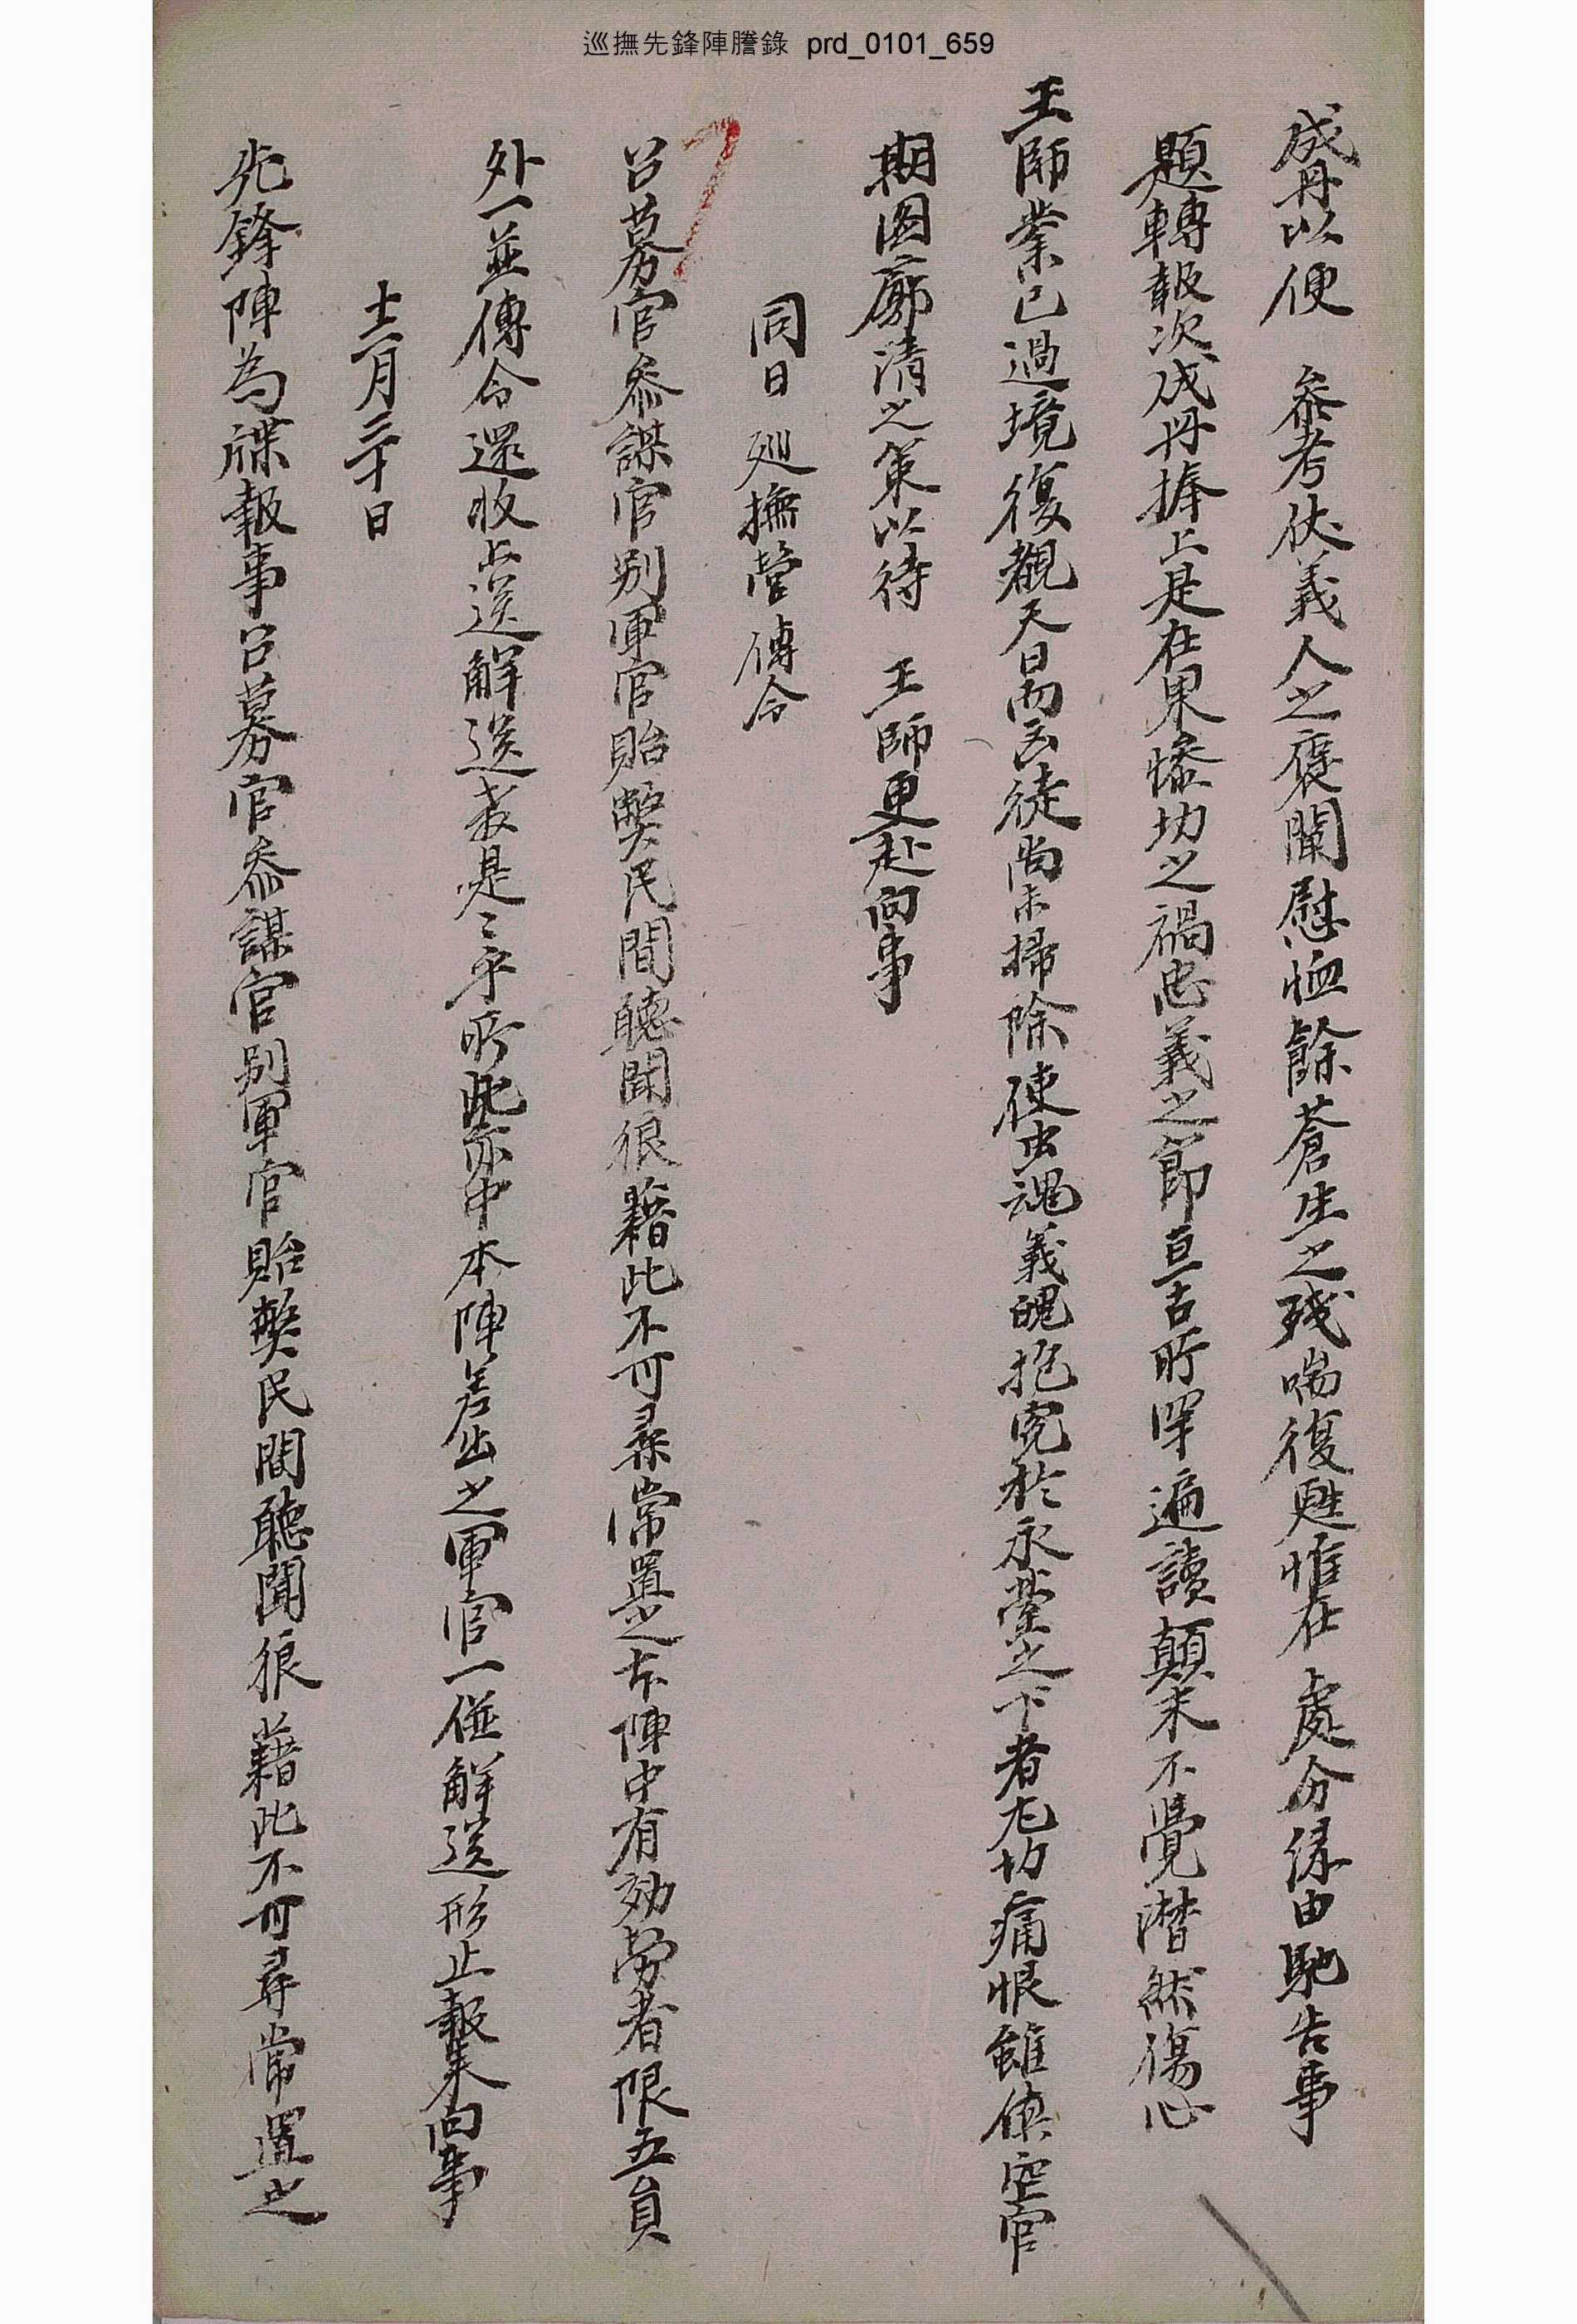 巡撫先鋒陣謄錄 prd_0101_659
成冊以便 參考伏義人之褒闡慰恤餘蒼生之殘喘復甦惟在 處分緣由馳告事
題轉報次成冊捧上是在果慘切之禍忠義之節亘古所罕遍讀顚末不覺潸然傷心
王師業已過境復觀天日而匈徒尚未掃除使虫魂義魄抱寃於永營之下者尤切痛恨雖僉空官
期圖廓清之策以待 王師更赴向事
同日 廵撫營傳令
召募官參謀官別軍官貽獘民間聽聞狼藉此不可尋常置之本陣中有效勞者限五員
外一並傳令還收上送解送敎是乎所此亦中本陣差出之軍官一倂解送形止報來向事
十二月二十日
先鋒陣爲牒報事召募官參謀官別軍官貽獘民間聽聞狼藉此不可尋常置之